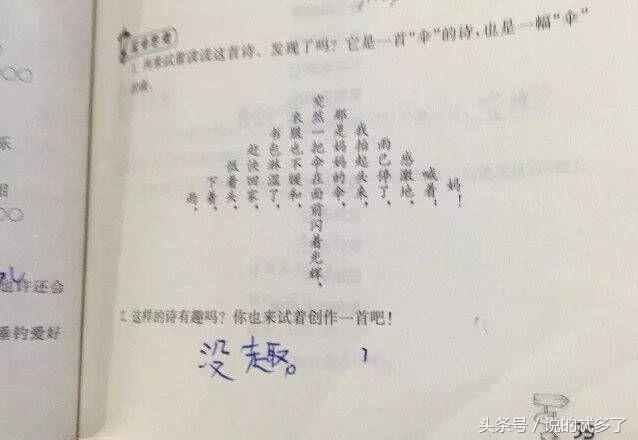 1. 再来试着读读这首诗，发现了吗？它是一首“伞”的诗，也是一幅“伞”
的画。
雨，
下着，
低着头，
赶快回家，
书包淋湿了，
衣服也不暖和，
突然一把伞在面前闪着光辉，
那是妈妈的伞，
我抬起头来，
雨已停了，
感激地，
喊着：
妈！
2. 这样的诗有趣吗？你也来试着创作一首吧！
没趣。
乐
也许还会
垂钓爱好
头条号／说的忒多了